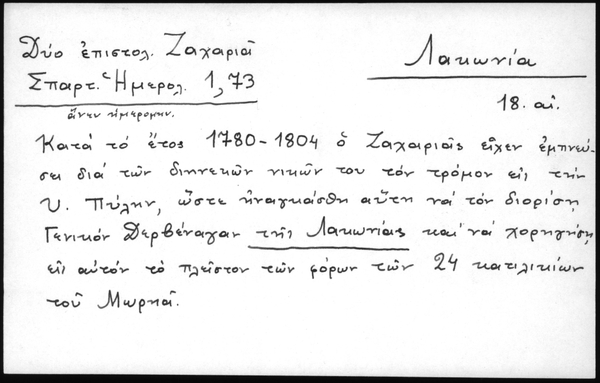 Δύο ἐπιστολ. Ζαχαριᾶ
Λακωνία
Σπαρτ. Ἡμερολ. 1,73
ἄνευ ἡμερομην.
18. αἰ.
Κατά τό ἔτος 1780-1804 ὁ Ζαχαριᾶς εἶχεν ἐμπνεύ-
σει διά τῶν διηνεκῶν νικῶν του τόν τρόμον εἰς τήν
Υ. Πύλην, ὥστε ἠναγκάσθη αὕτη νά τόν διορίσῃ
Γενικόν Δερβέναγαν τῆς Λακωνίας καί νά χορηγήσῃ
εἰς αὐτόν τό πλεῖστον τῶν φόρων τῶν 24 κατιλικίων
τοῦ Μωρηᾶ.